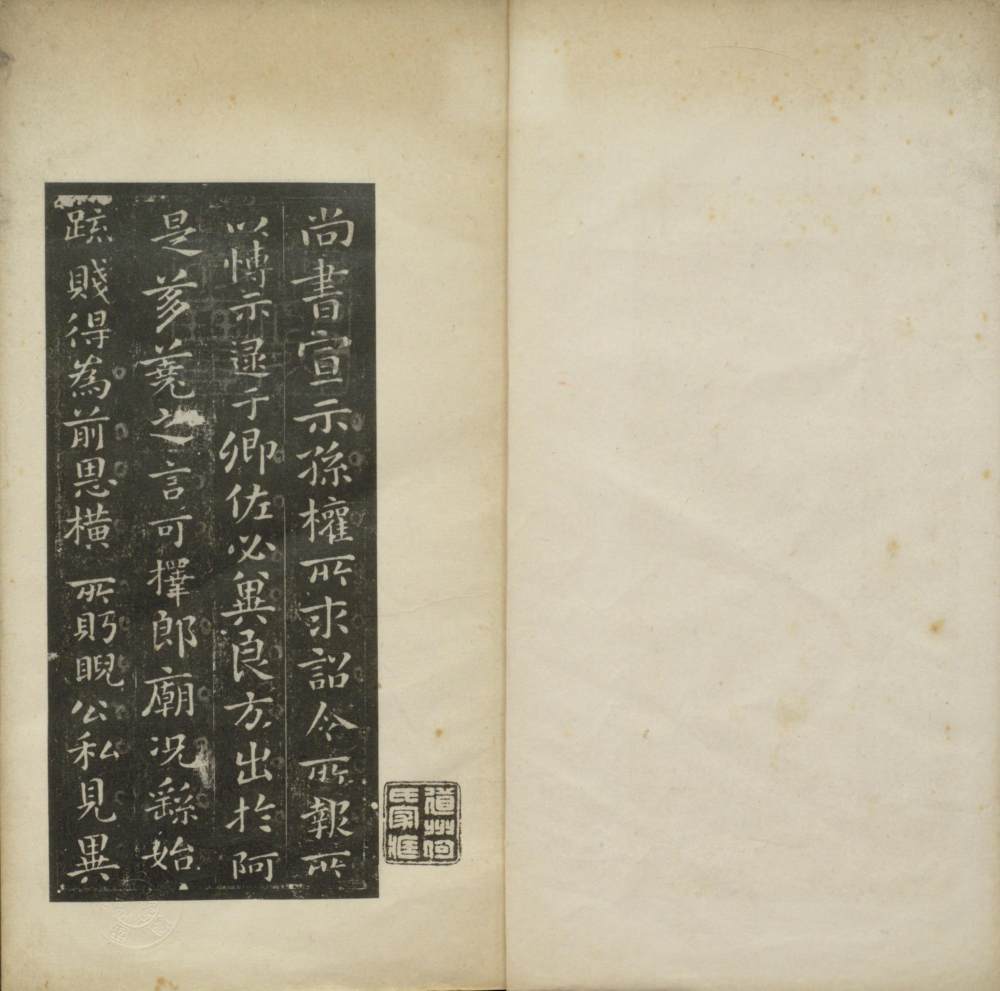 尚書宣示孫權所求詔令所報所
以博示逮于卿佐必冀良方出於阿
是芻蕘之言可擇郎廟況繇始
疏賤得為前恩橫所眄睨公私見異
道州何
氏家藏